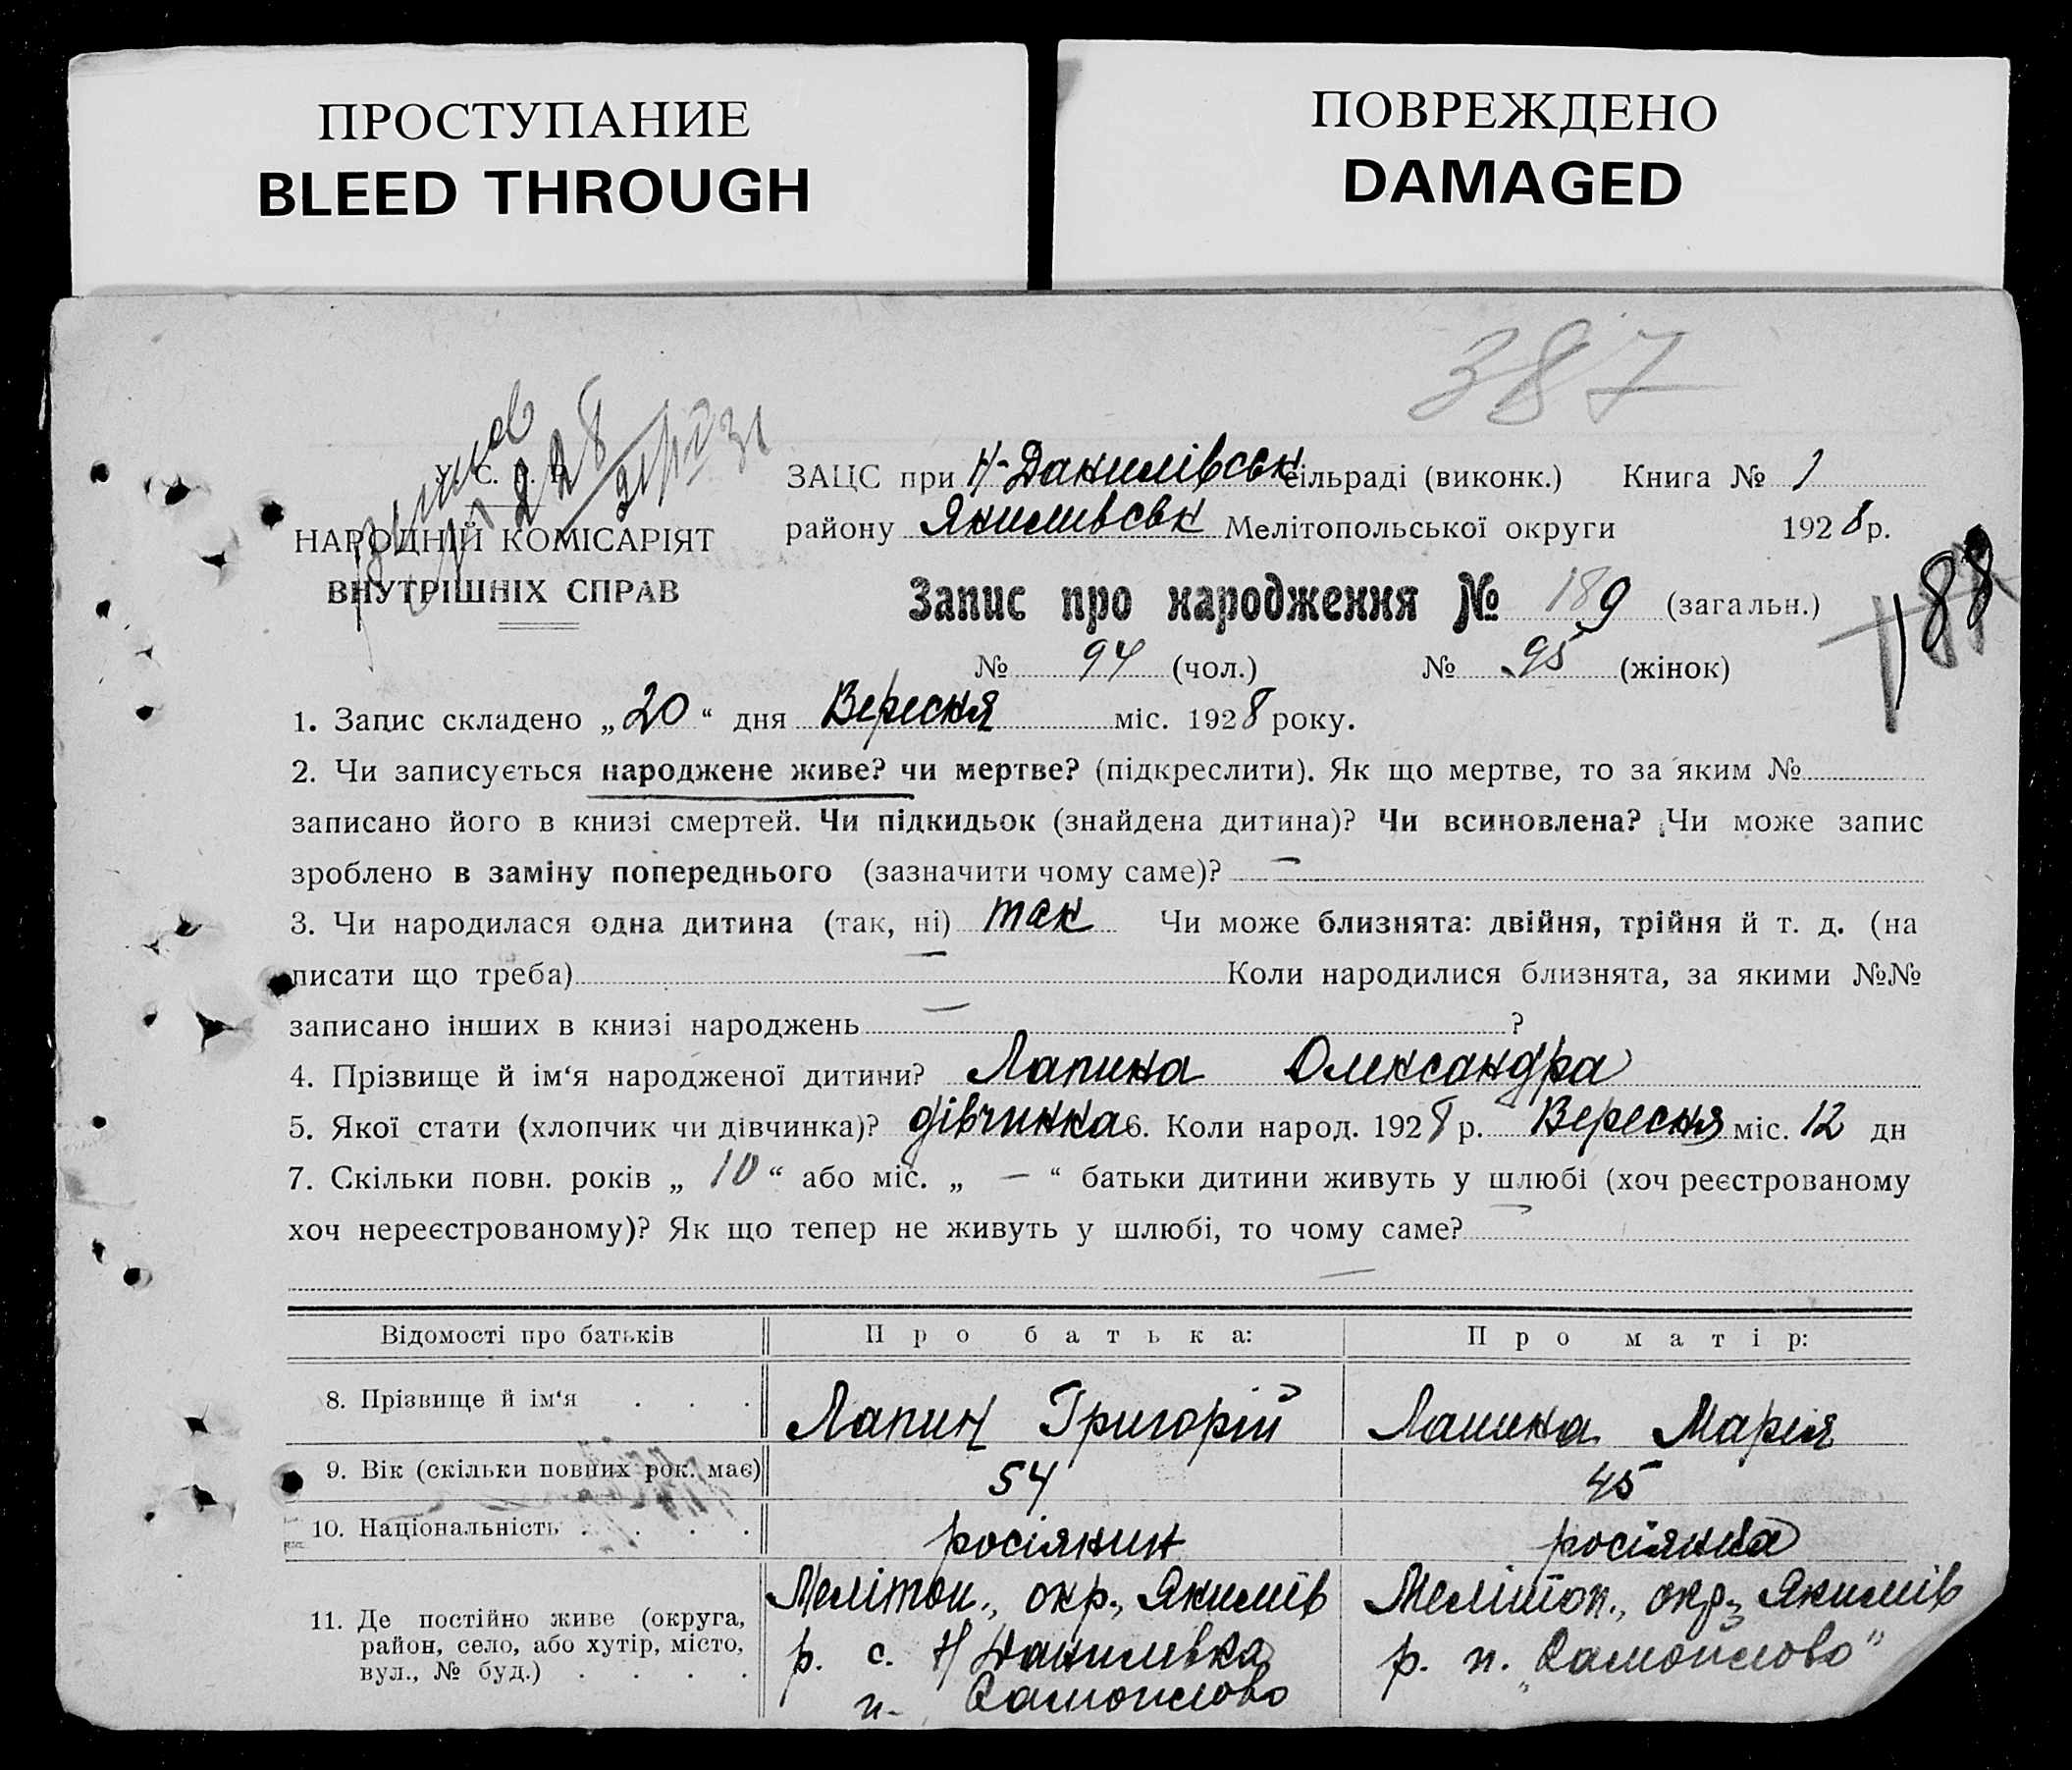 ПРОСТУПАНИЕ
BLEED THROUGH
ПОВРЕЖДЕНО
DAMAGED
387
У. С. Р. Р.
НАРОДНІЙ КОМІСАРІЯТ
ВНУТРІШНІХ СПРАВ
ЗАЦС при Н-Данилівськ сільраді (виконк.) Книга № 1
району Якимівськ Мелітопольської округи 1928 р.
Запис про народження № 189 (загальн.) 188
№ 94 (чол.) № 95 (жінок)
1. Запис складено „20“ дня Вересня міс. 1928 року.
2. Чи записується народжене живе? чи мертве? (підкреслити). Як що мертве, то за яким №
записано його в книзі смертей. Чи підкидьок (знайдена дитина)? Чи всиновлена? Чи може запис
зроблено в заміну попереднього (зазначити чому саме)? —
3. Чи народилася одна дитина (так, ні) так Чи може близнята: двійня, трійня й т. д. (на
писати що треба) — Коли народилися близнята, за якими №№
записано інших в книзі народжень — ?
4. Прізвище й ім‘я народженої дитини? Лапина Олександра
5. Якої стати (хлопчик чи дівчинка)? дівчинка 6. Коли народ. 1928 р. Вересня міс. 12 дн
7. Скільки повн. років „ 10 “ або міс. „ — “ батьки дитини живуть у шлюбі (хоч реєстрованому
хоч нереєстрованому)? Як що тепер не живуть у шлюбі, то чому саме? —
—
Відомості про батьків Про батька: Про матір:
8. Прізвище й ім‘я . . . Лапин Григорій Лапина Марія
9. Вік (скільки повних рок. має) 54 45
10. Національність . . . . росіянин росіянка
11. Де постійно живе (округа,
район, село, або хутір, місто,
вул., № буд.) . . . .
Мелітоп., окр., Якимів
р. с. Н Данилівка
п. Самойлово
Мелітоп., окр., Якимів
р. п. „Самойлово“